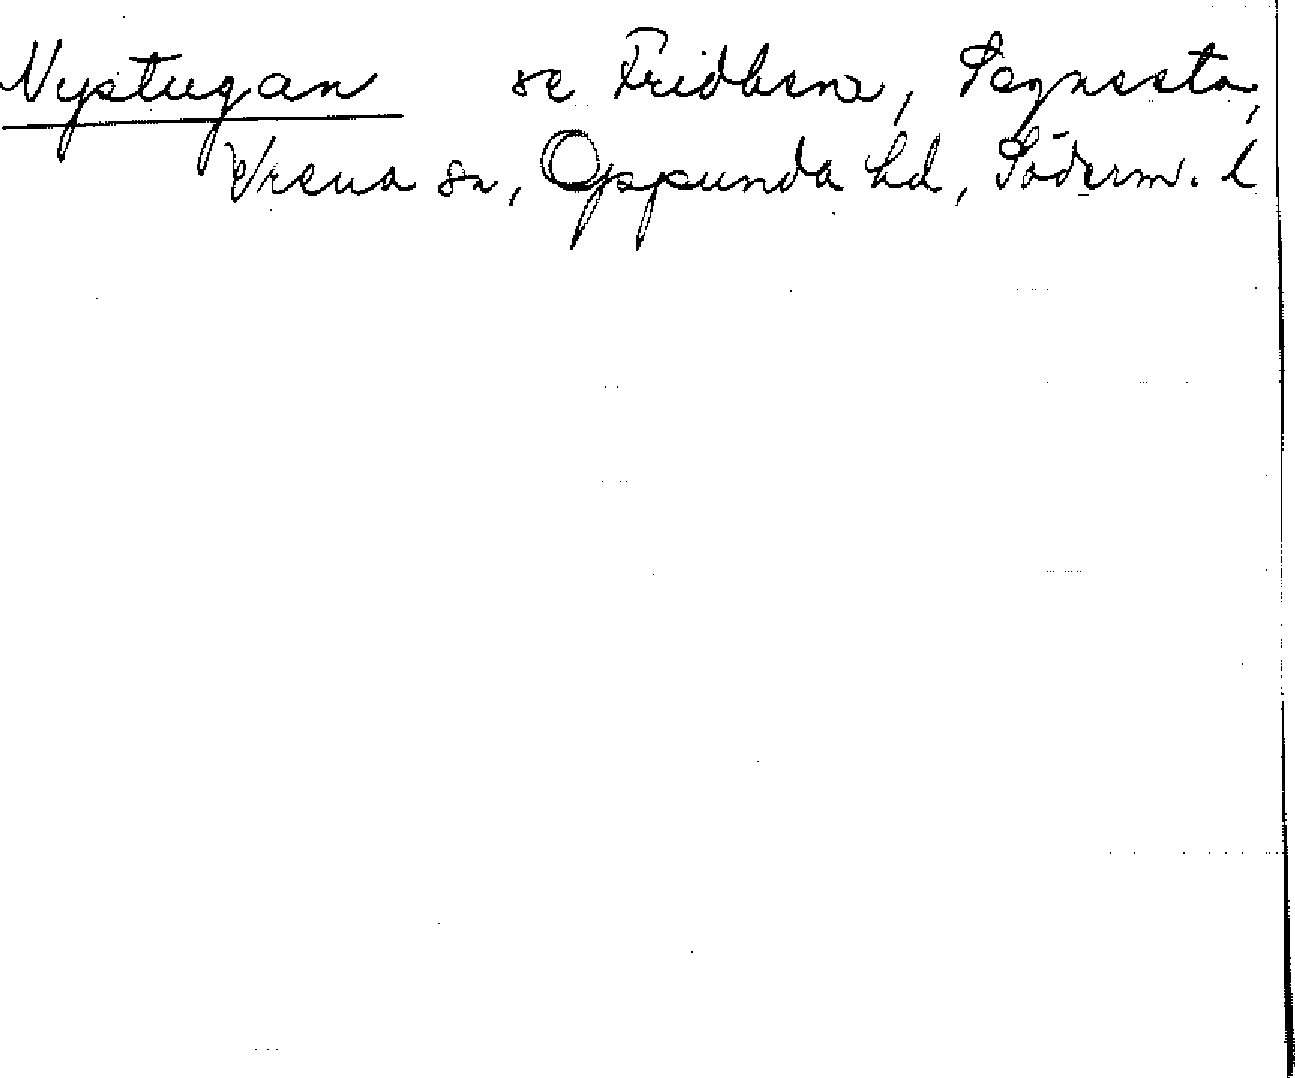 Nystugan se Fridhem, Segnesta,
Vrena sn, Oppunda hd, Söderm. l